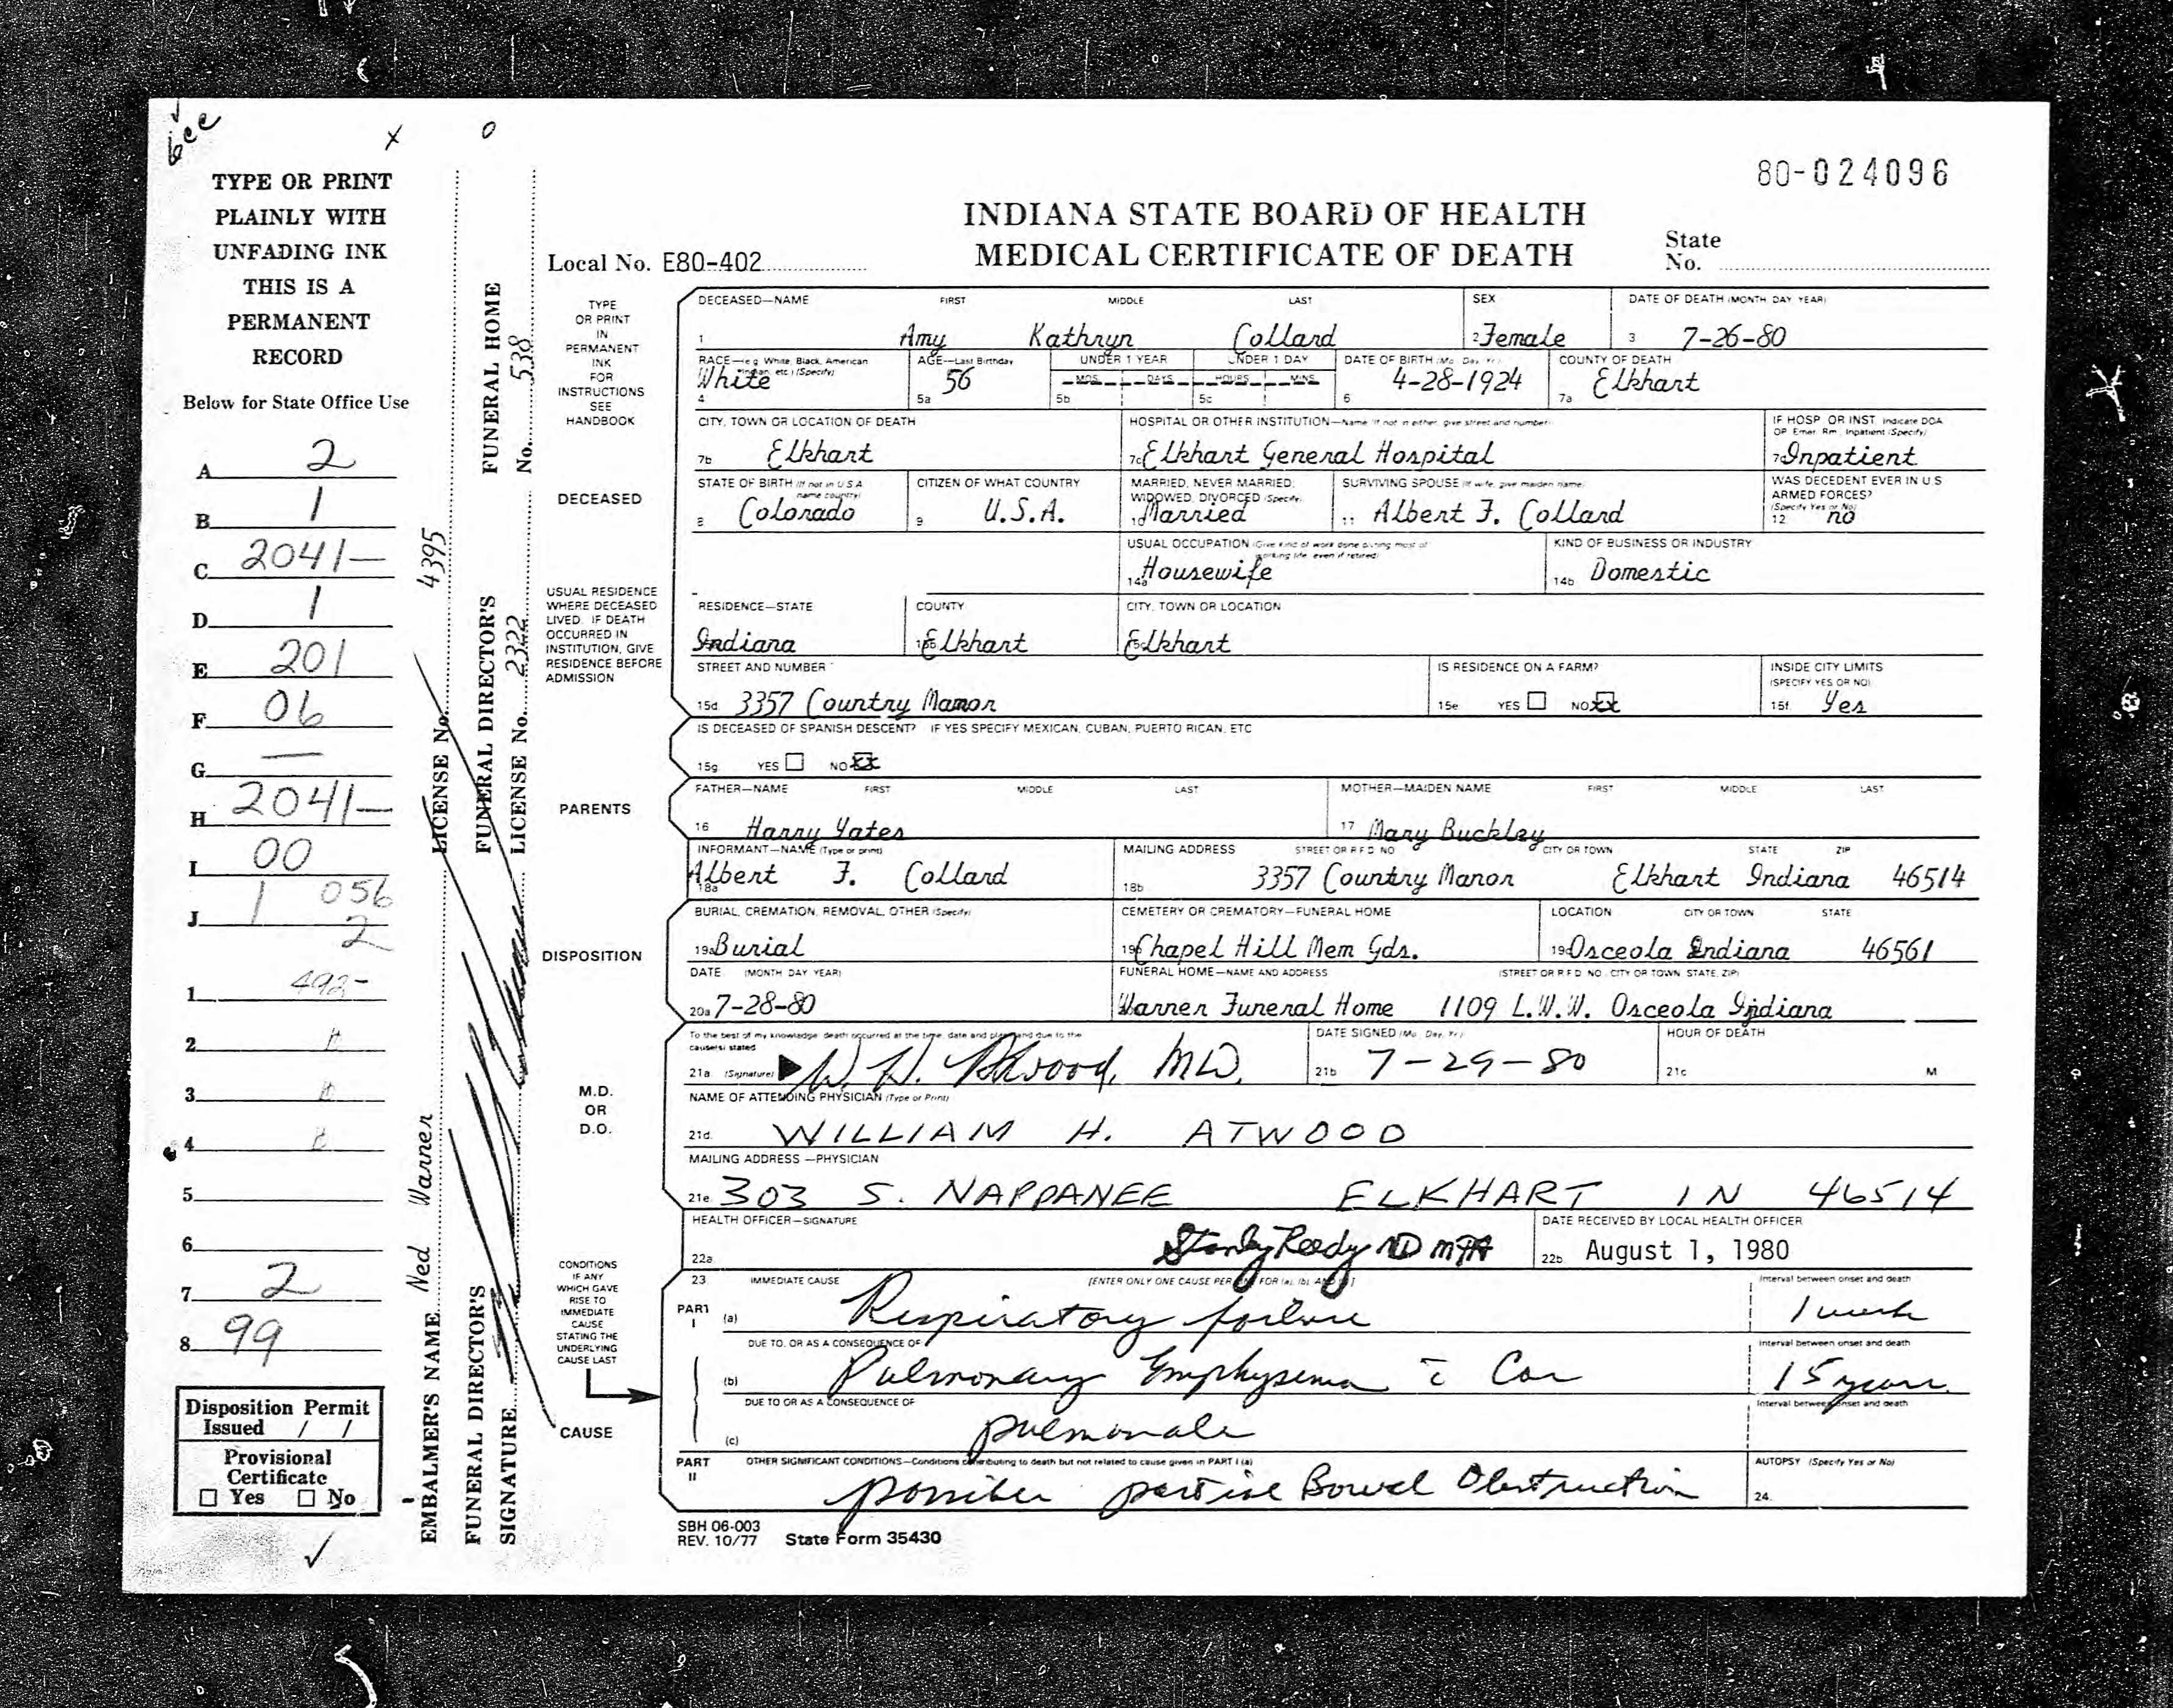 6cc
x
o
80-024096
TYPE OR PRINT
PLAINLY WITH
UNFADING INK
THIS IS A
PERMANENT
RECORD
Below for State Office Use
A 2
B 1
C 2041-
D 1
E 201
F 06
G —
H 2041-
I 00
J 1 056
2
1 492-
2
3
4
5
6
7 2
8 99
Disposition Permit
Issued / /
Provisional
Certificate
☐ Yes ☐ No
✓
EMBALMER'S NAME Ned Warner LICENSE No. 4395
FUNERAL DIRECTOR'S
SIGNATURE
FUNERAL DIRECTOR'S
LICENSE No. 2322
FUNERAL HOME
No. 538
INDIANA STATE BOARD OF HEALTH
MEDICAL CERTIFICATE OF DEATH
Local No. E80-402
State
No.
TYPE
OR PRINT
IN
PERMANENT
INK
FOR
INSTRUCTIONS
SEE
HANDBOOK
DECEASED
USUAL RESIDENCE
WHERE DECEASED
LIVED. IF DEATH
OCCURRED IN
INSTITUTION, GIVE
RESIDENCE BEFORE
ADMISSION
PARENTS
DISPOSITION
M.D.
OR
D.O.
CONDITIONS
IF ANY
WHICH GAVE
RISE TO
IMMEDIATE
CAUSE
STATING THE
UNDERLYING
CAUSE LAST
CAUSE
DECEASED—NAME FIRST MIDDLE LAST SEX DATE OF DEATH (MONTH DAY YEAR)
1 Amy Kathryn Collard 2 Female 3 7-26-80
RACE—(e.g. White, Black, American Indian, etc.) (Specify) AGE—Last Birthday UNDER 1 YEAR UNDER 1 DAY DATE OF BIRTH (Mo. Day, Yr.) COUNTY OF DEATH
MOS. DAYS HOURS MINS.
4 White 5a 56 5b 5c 6 4-28-1924 7a Elkhart
CITY, TOWN OR LOCATION OF DEATH HOSPITAL OR OTHER INSTITUTION—Name (If not in either, give street and number) IF HOSP OR INST. Indicate DOA
OP Emer. Rm., Inpatient (Specify)
7b Elkhart 7c Elkhart General Hospital 7d Inpatient
STATE OF BIRTH (If not in U.S.A. name country) CITIZEN OF WHAT COUNTRY MARRIED, NEVER MARRIED, WIDOWED, DIVORCED (Specify) SURVIVING SPOUSE (If wife, give maiden name) WAS DECEDENT EVER IN U.S. ARMED FORCES? (Specify Yes or No)
8 Colorado 9 U.S.A. 10 Married 11 Albert F. Collard 12 no
USUAL OCCUPATION (Give kind of work done during most of working life, even if retired) KIND OF BUSINESS OR INDUSTRY
14a Housewife 14b Domestic
RESIDENCE—STATE COUNTY CITY, TOWN OR LOCATION
Indiana 15b Elkhart 15c Elkhart
STREET AND NUMBER IS RESIDENCE ON A FARM? INSIDE CITY LIMITS
(SPECIFY YES OR NO)
15d 3357 Country Manor 15e YES ☐ NO xx 15f Yes
IS DECEASED OF SPANISH DESCENT? IF YES SPECIFY MEXICAN, CUBAN, PUERTO RICAN, ETC
15g YES ☐ NO xx
FATHER—NAME FIRST MIDDLE LAST MOTHER—MAIDEN NAME FIRST MIDDLE LAST
16 Harry Yates 17 Mary Buckley
INFORMANT—NAME (Type or print) MAILING ADDRESS STREET OR R.F.D. NO CITY OR TOWN STATE ZIP
18a Albert F. Collard 18b 3357 Country Manor Elkhart Indiana 46514
BURIAL, CREMATION, REMOVAL, OTHER (Specify) CEMETERY OR CREMATORY—FUNERAL HOME LOCATION CITY OR TOWN STATE
19a Burial 19b Chapel Hill Mem Gds. 19c Osceola Indiana 46561
DATE (MONTH DAY YEAR) FUNERAL HOME—NAME AND ADDRESS (STREET OR R.F.D. NO. CITY OR TOWN STATE, ZIP)
20a 7-28-80 Warner Funeral Home 1109 L.W.W. Osceola Indiana
To the best of my knowledge death occurred at the time, date and place and due to the cause(s) stated DATE SIGNED (Mo. Day, Yr.) HOUR OF DEATH
21a (Signature) W. H. Atwood, MD. 21b 7-29-80 21c M
NAME OF ATTENDING PHYSICIAN (Type or Print)
21d WILLIAM H. ATWOOD
MAILING ADDRESS—PHYSICIAN
21e 303 S. NAPPANEE ELKHART IN 46514
HEALTH OFFICER—SIGNATURE DATE RECEIVED BY LOCAL HEALTH OFFICER
22a 22b August 1, 1980
23 IMMEDIATE CAUSE [ENTER ONLY ONE CAUSE PER LINE FOR (a), (b), AND (c)] Interval between onset and death
PART I (a) Respiratory failure 1 week
DUE TO, OR AS A CONSEQUENCE OF: Interval between onset and death
(b) Pulmonary Emphysema c̄ Cor 15 years
DUE TO OR AS A CONSEQUENCE OF Interval between onset and death
(c) pulmonale
PART II OTHER SIGNIFICANT CONDITIONS—Conditions contributing to death but not related to cause given in PART I (a) AUTOPSY (Specify Yes or No)
possible partial Bowel Obstruction 24.
SBH 06-003
REV. 10/77 State Form 35430